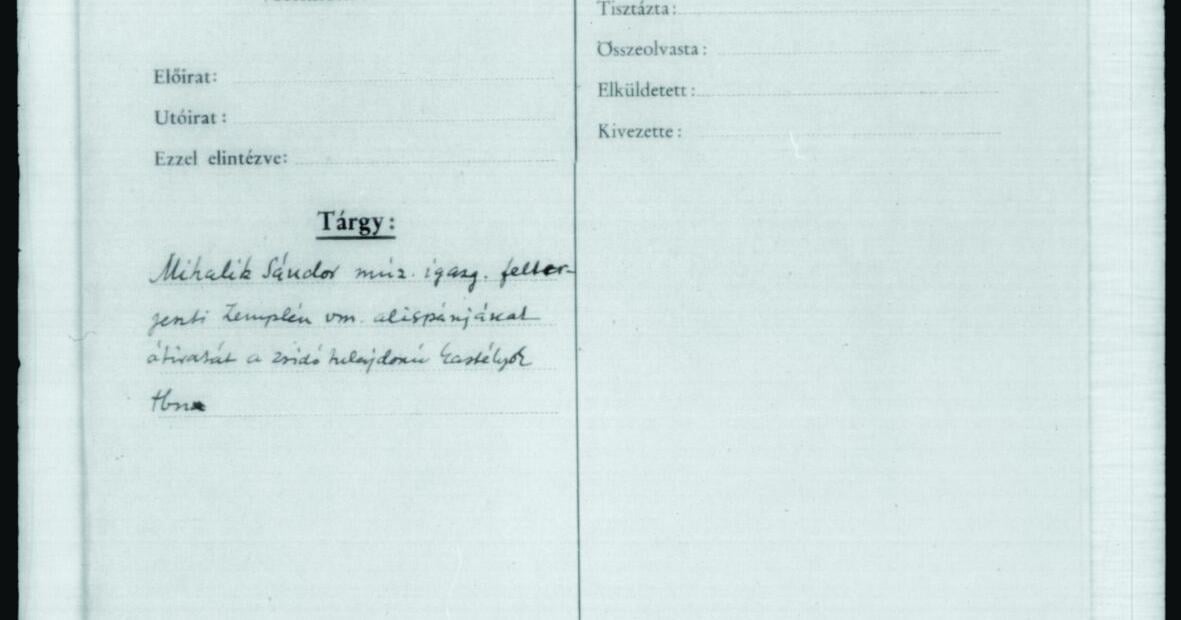 Előirat:
Utóirat:
Ezzel elintézve:
Tisztázta:
Összeolvasta:
Elküldetett:
Kivezette:
Tárgy:
Mihalik Sándor múz. igazg. felter-
jeszti Zemplén vm. alispánjának
átiratát a zsidó tulajdonú kastélyok